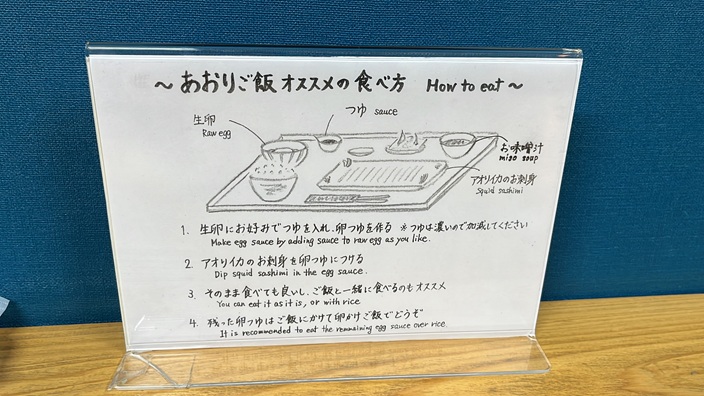 ～ あおりご飯 オススメの食べ方 How to eat ～
つゆ sauce
生卵
Raw egg
お味噌汁
miso soup
アオリイカのお刺身
Squid sashimi
1. 生卵にお好みでつゆを入れ、卵つゆを作る ※つゆは濃いので加減してください
Make egg sauce by adding sauce to raw egg as you like.
2. アオリイカのお刺身を卵つゆにつける
Dip squid sashimi in the egg sauce.
3. そのまま食べても良いし、ご飯と一緒に食べるのもオススメ
You can eat it as it is, or with rice
4. 残った卵つゆはご飯にかけて卵かけご飯でどうぞ
It is recommended to eat the remaining egg sauce over rice.